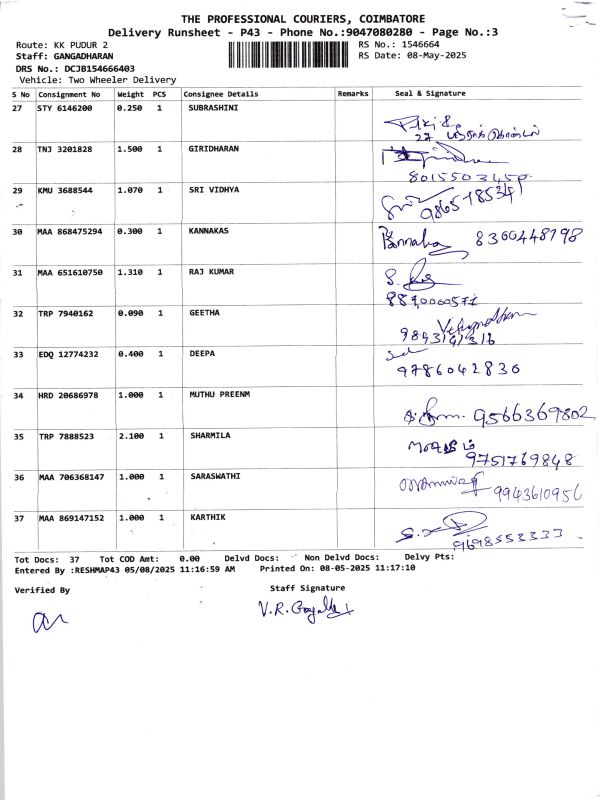 THE PROFESSIONAL COURIERS, COIMBATORE
Delivery Runsheet - P43 - Phone No.:9047080280 - Page No.:3
Route: KK PUDUR 2 RS No.: 1546664
Staff: GANGADHARAN RS Date: 08-May-2025
DRS No.: DCJB154666403
Vehicle: Two Wheeler Delivery
S No Consignment No Weight PCS Consignee Details Remarks Seal & Signature
27 STY 6146200 0.250 1 SUBRASHINI
27
28 TNJ 3201828 1.500 1 GIRIDHARAN
8015503450
29 KMU 3688544 1.070 1 SRI VIDHYA
9865785341
30 MAA 868475294 0.300 1 KANNAKAS
8360448198
31 MAA 651610750 1.310 1 RAJ KUMAR
8890000577
32 TRP 7940162 0.090 1 GEETHA
33 EDQ 12774232 0.400 1 DEEPA
9786042836
34 HRD 20686978 1.000 1 MUTHU PREENM
9566369802
35 TRP 7888523 2.100 1 SHARMILA
9751769848
36 MAA 706368147 1.000 1 SARASWATHI
9943610956
37 MAA 869147152 1.000 1 KARTHIK
9698553333
Tot Docs: 37 Tot COD Amt: 0.00 Delvd Docs: Non Delvd Docs: Delvy Pts:
Entered By :RESHMAP43 05/08/2025 11:16:59 AM Printed On: 08-05-2025 11:17:10
Verified By Staff Signature